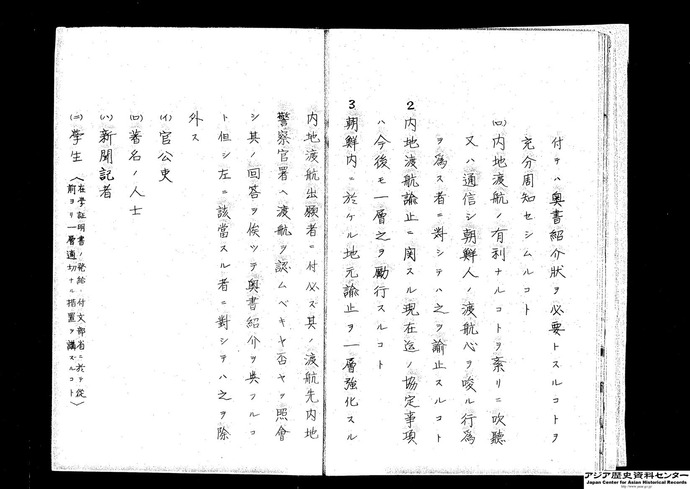 付ヲハ奥書紹介狀ヲ必要トスルコトヲ
充分周知セシムルコト
(ロ)内地渡航ノ有利ナルコトヲ紊リニ吹聽
又ハ通信シ朝鮮人ノ渡航心ヲ唆ル行爲
ヲ爲ス者ニ對シテハ之ヲ諭止スルコト
2 内地渡航諭止ニ関スル現在迄ノ協定事項
ハ今後モ一層之ヲ勵行スルコト
3 朝鮮内ニ於ケル地元諭止ヲ一層強化スル
内地渡航出願者ニ付必ス其ノ渡航先内地
警察官署ヘ渡航ヲ認ムベキヤ否ヤヲ照會
シ其ノ回答ヲ俟ツテ奥書紹介ヲ與フルコ
ト但シ左ニ該當スル者ニ對シテハ之ヲ除
外ス
(イ)官公吏
(ロ)著名ノ人士
(ハ)新聞記者
(ニ)學生(在學証明書ノ発給ニ付文部省ニ於テ從
前ヨリ一層適切ナル措置ヲ講スルコト)
アジア歴史資料センター
Japan Center for Asian Historical Records
http://www.jacar.go.jp/